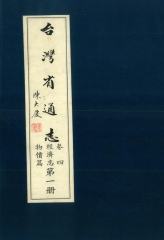 台灣省通志
陳大慶
卷四
經濟志
物價篇
第一册